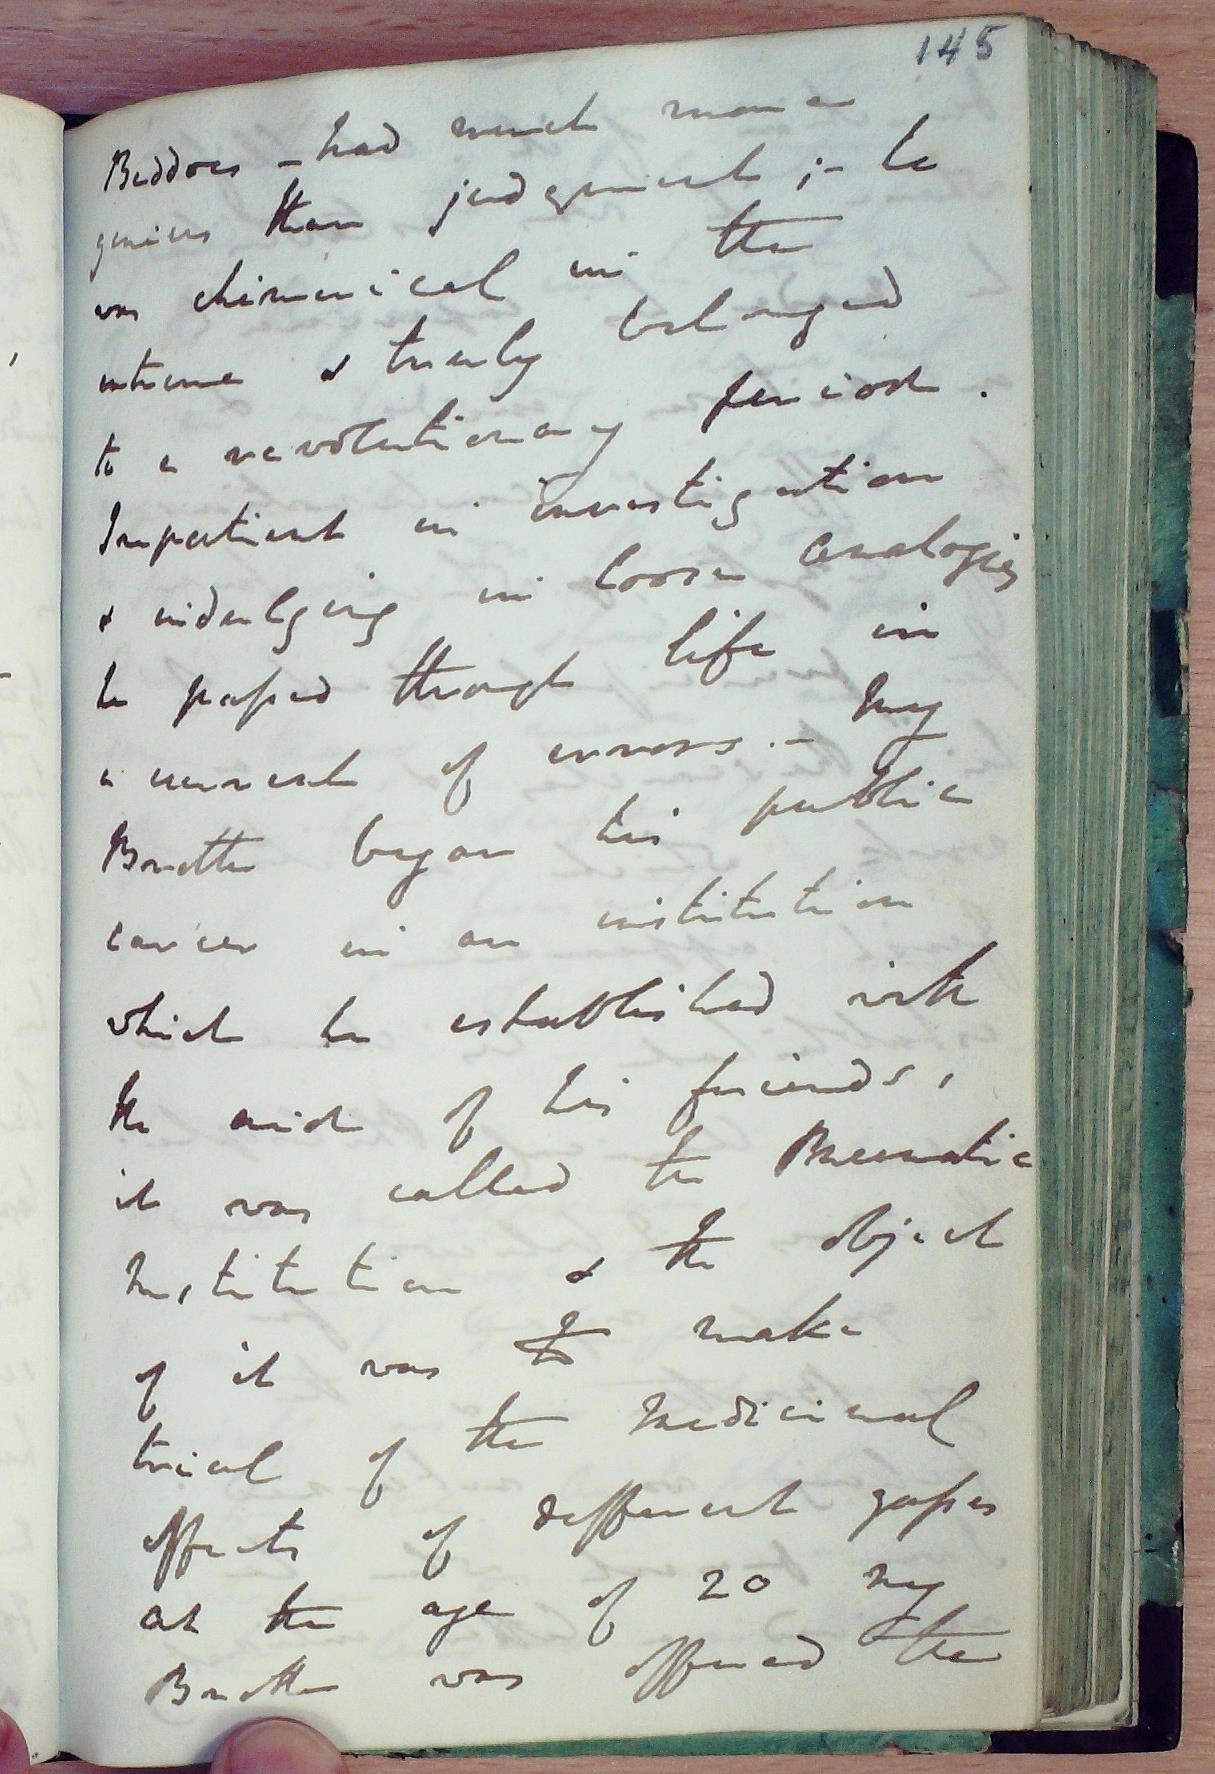 145
Beddoes - had much more
genius than judgment ;- he
was chimerical in the
extreme & truly belonged
to a revolutionary period.
Impatient in investigation
& indulging in loose analogies
he passed through life in
a current of errors. - My
Brother began his public
career in an institution
which he established with
the aid of his friends,
it was called the Pneumatic
Institution & the object
of it was to make
trial of the medicinal
effects of different gasses
at the age of 20 my
Brother was offered the